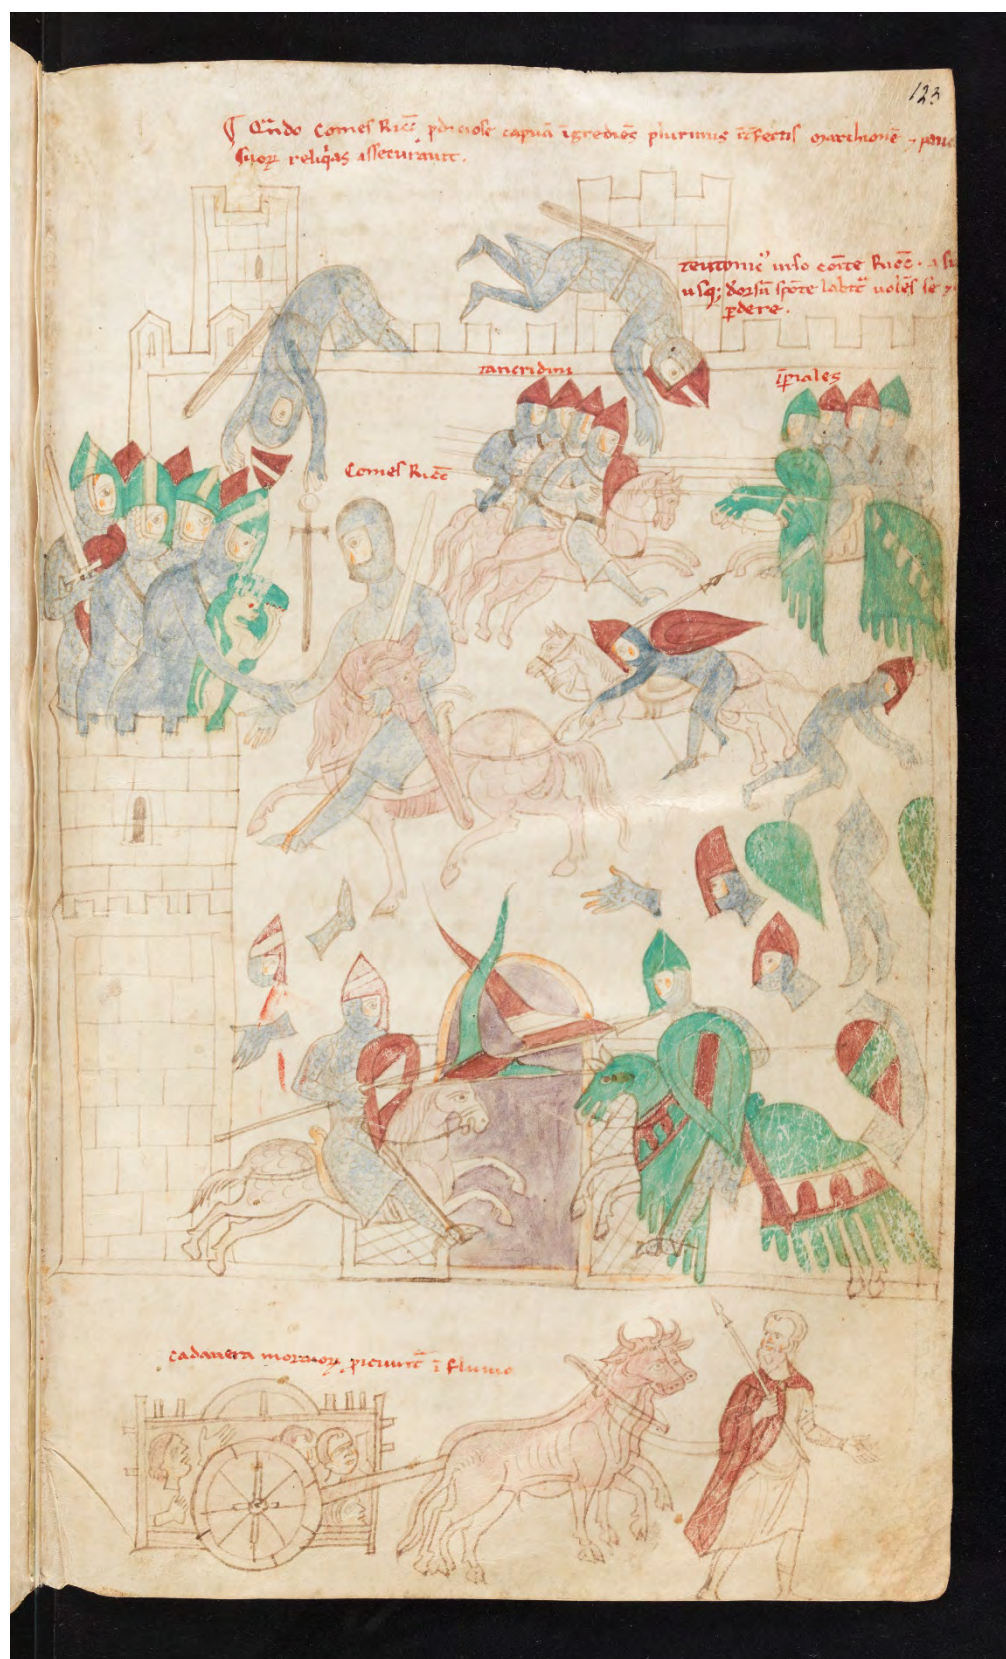 123
¶ Qn̄do Comes Ric̄ pdiciose capuā īgrediēs plurimis īt̄fectis marchionē
suor⁊ reliq̄as assecurauit.
teutonic᷒ uiso cōite Ricc̄.
usq; dorsū spōte labit᷑ uolēs se
ꝑdere.
tancridini
īꝑiales
Comes Ricc̄
cadauera mortuor⁊ piciunt᷑ ī fluuio